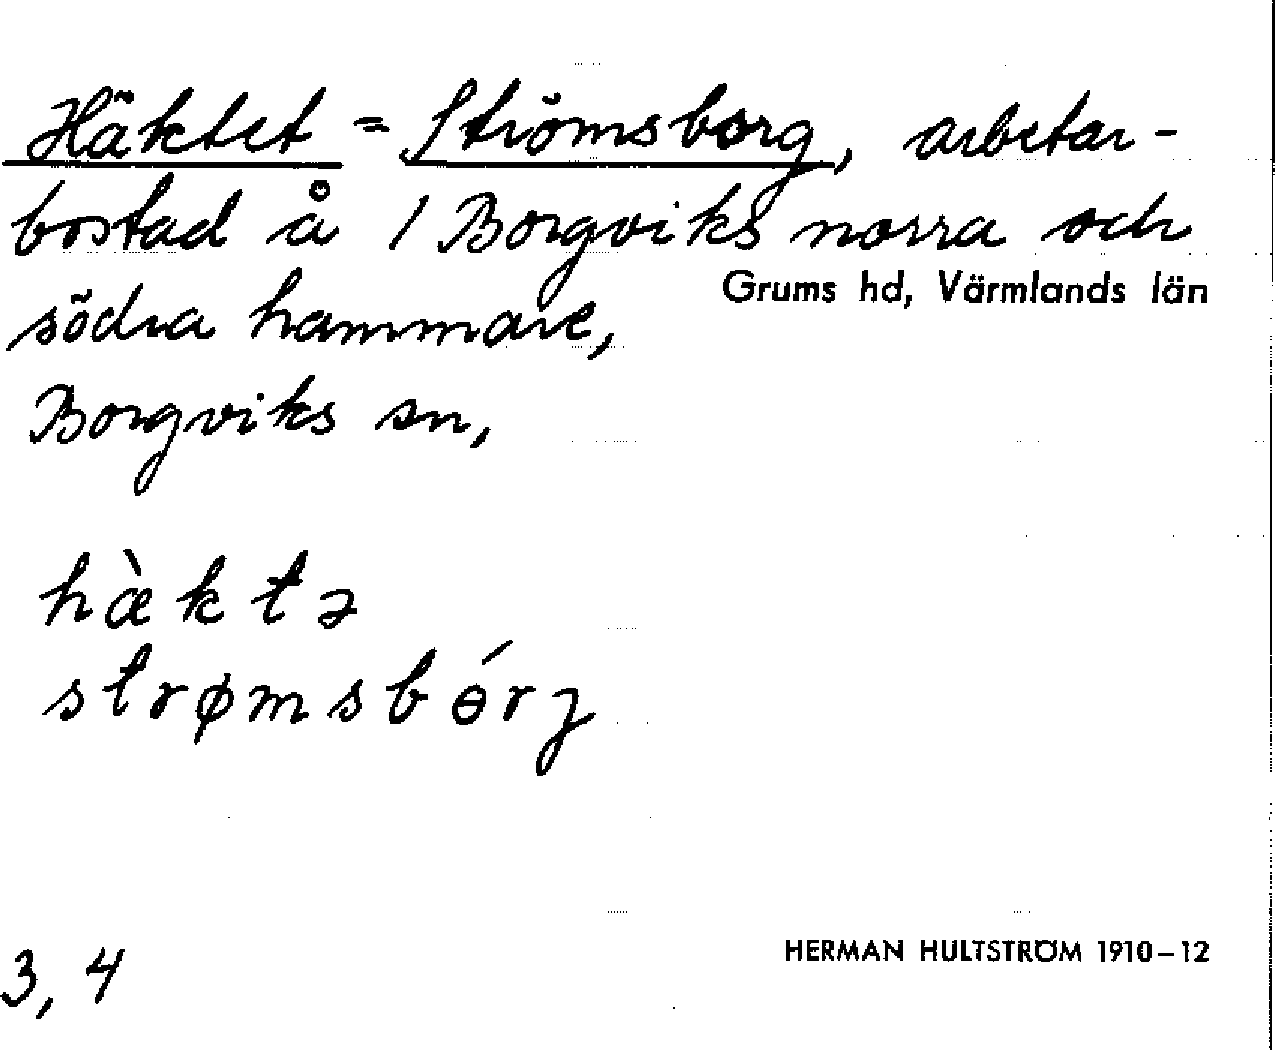 Häktet = Strömsborg, arbetar-
bostad å 1 Borgviks norra och
södra hammare,
Grums hd, Värmlands län
Borgviks sn,
hæ̀ktə
strømsbɵ́rj
3, 4
HERMAN HULTSTRÖM 1910–12